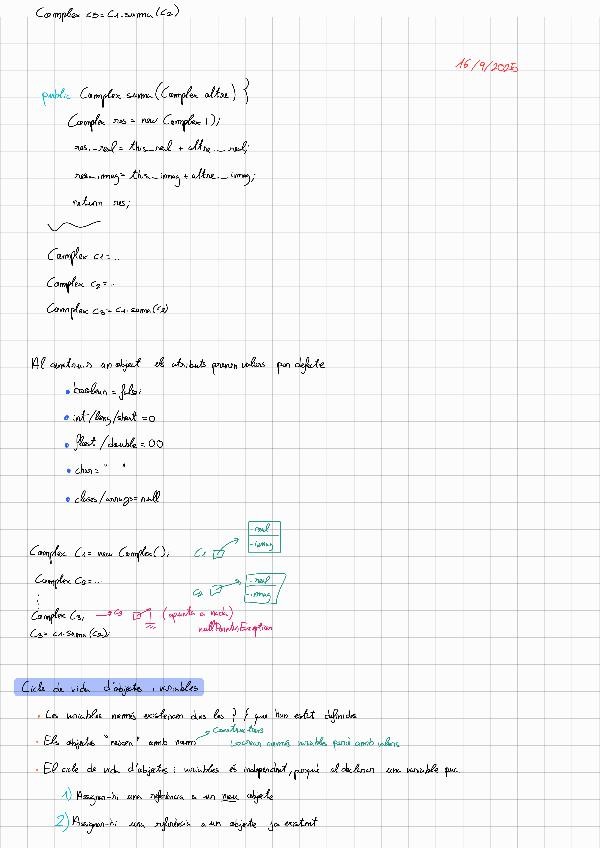 Complex c3 = c1.suma(c2)
16/9/2025
public Complex suma(Complex altre) }
Complex res = new Complex();
res._real = this._real + altre._real;
res._imag = this._imag + altre._imag;
return res;
Complex c1 = ..
Complex c2 = ..
Complex c3 = c1.suma(c2)
Al construir un object els atributs prenen valors per defecte
• boolean = false
• int/long/short = 0
• float/double = 0.0
• char = " "
• clases/arrays = null
Complex C1 = new Complex();
C1
-real
-imag
Complex C2 = ...
C2
-real
-imag
Complex C3; → C3 (apunta a nada)
C3 = c1.suma(c2);
nullPointerException
Cicle de vida d'objectes i variables
• Les variables només existeixen dins les } { que han estat definides
Constructors
• Els objectes "neixen" amb
només variables però amb valors
• El cicle de vida d'objectes i variables és independent, perquè al declarar una variable puc
1) Assignar-hi una referència a un nou objecte
2) Assignar-hi una referència a un objecte ja existent